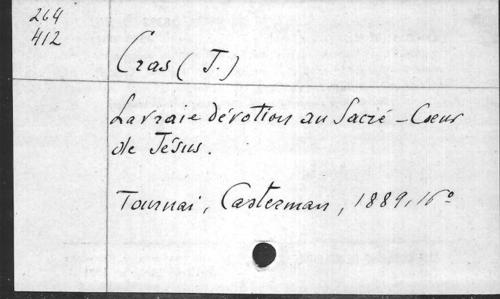 264
412
Cras (J.)
La vraie dévotion au Sacré-Cœur
de Jésus.
Tournai, Casterman, 1889, 16º